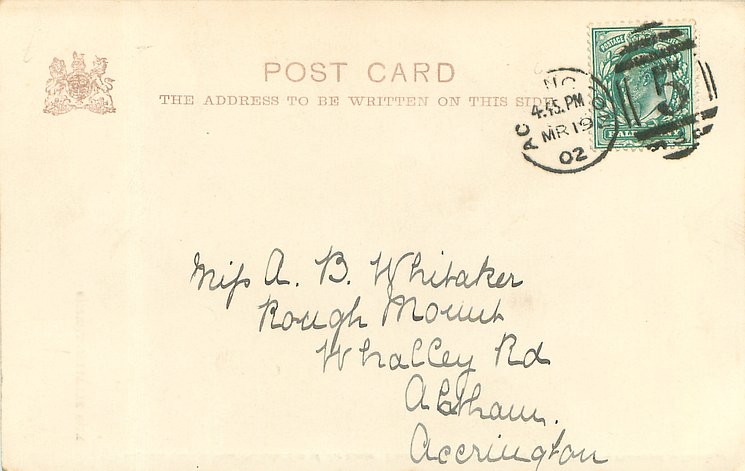 POST CARD
THE ADDRESS TO BE WRITTEN ON THIS SIDE
4.45.PM
MR 19
02
5
POSTAGE
HALFPENNY
Miss A. B. Whitaker
Rough Mount
Whalley Rd
Altham.
Accrington